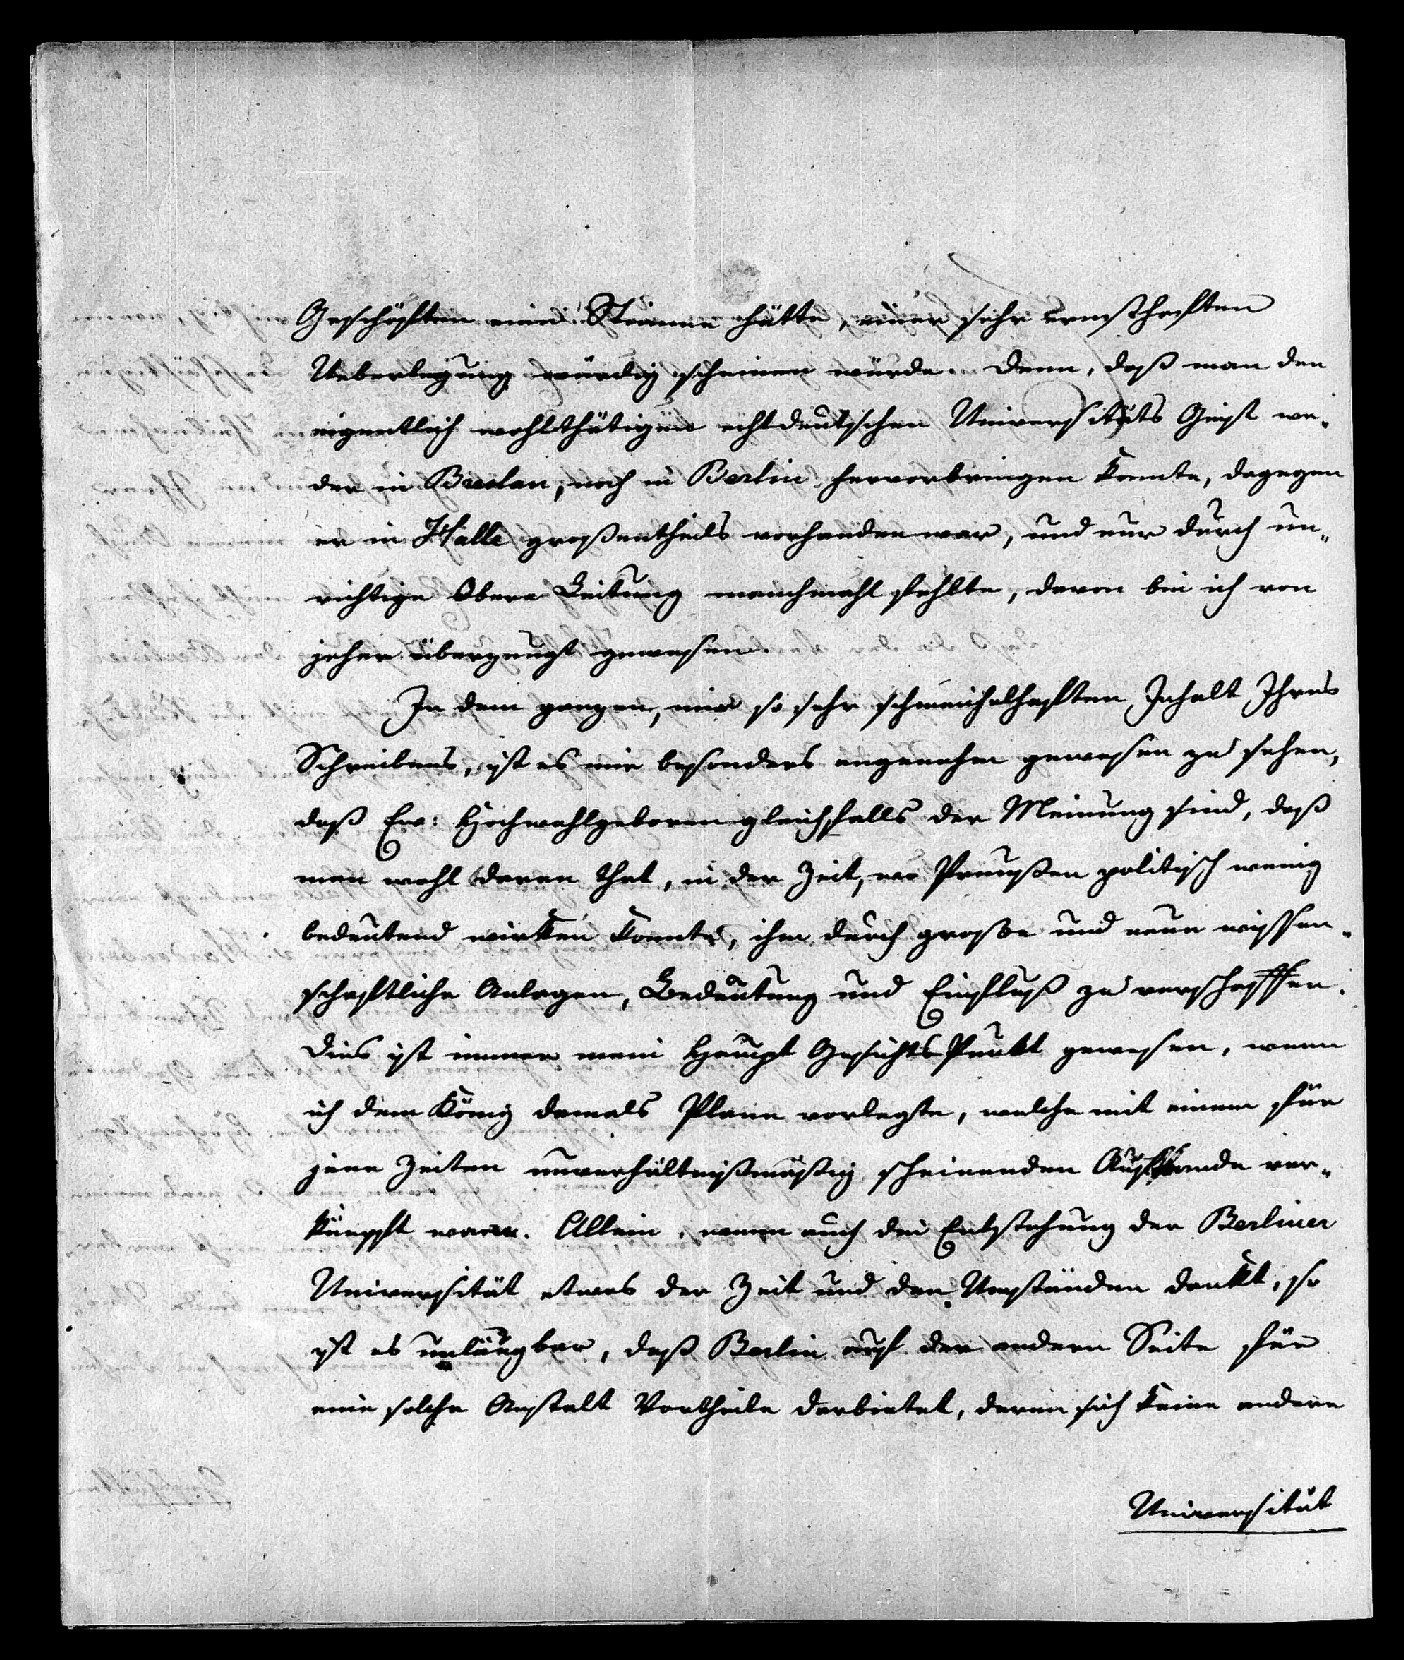 Geschäften eine Stimme hätte, einer sehr ernsthaften
Ueberlegung würdig scheinen würde. Denn, daß man den
eigentlich wohlthätigen echtdeutschen Universitäts Geist we-
der in Breslau, noch in Berlin hervorbringen konnte, dagegen
er in Halle großentheils vorhanden war, und nur durch un-
richtige Obere Leitung manchmahl fehlte, davon bin ich von
jeher überzeugt gewesen.
In dem ganzen, mir so sehr schmeichelhaften Inhalt Ihres
Schreibens, ist es mir besonders angenehm gewesen zu sehen,
daß Ew: Hochwohlgeboren gleichfalls der Meinung sind, daß
man wohl daran that, in der Zeit, wo Preußen politisch wenig
bedeutend wirken konnte, ihm durch große und neue wissen-
schaftliche Anlagen, Bedeutung und Einfluß zu verschaffen.
Dies ist immer mein Haupt GesichtsPunkt gewesen, wenn
ich dem König damals Plane vorlegte, welche mit einem für
jene Zeiten unverhältnißmäßig scheinenden Aufwande ver-
knüpft waren. Allein, wenn auch die Entstehung der Berliner
Universität etwas der Zeit und den Umständen dankt, so
ist es unläugbar, daß Berlin auf der andern Seite für
eine solche Anstalt Vortheile darbietet, deren sich keine andere
Universität